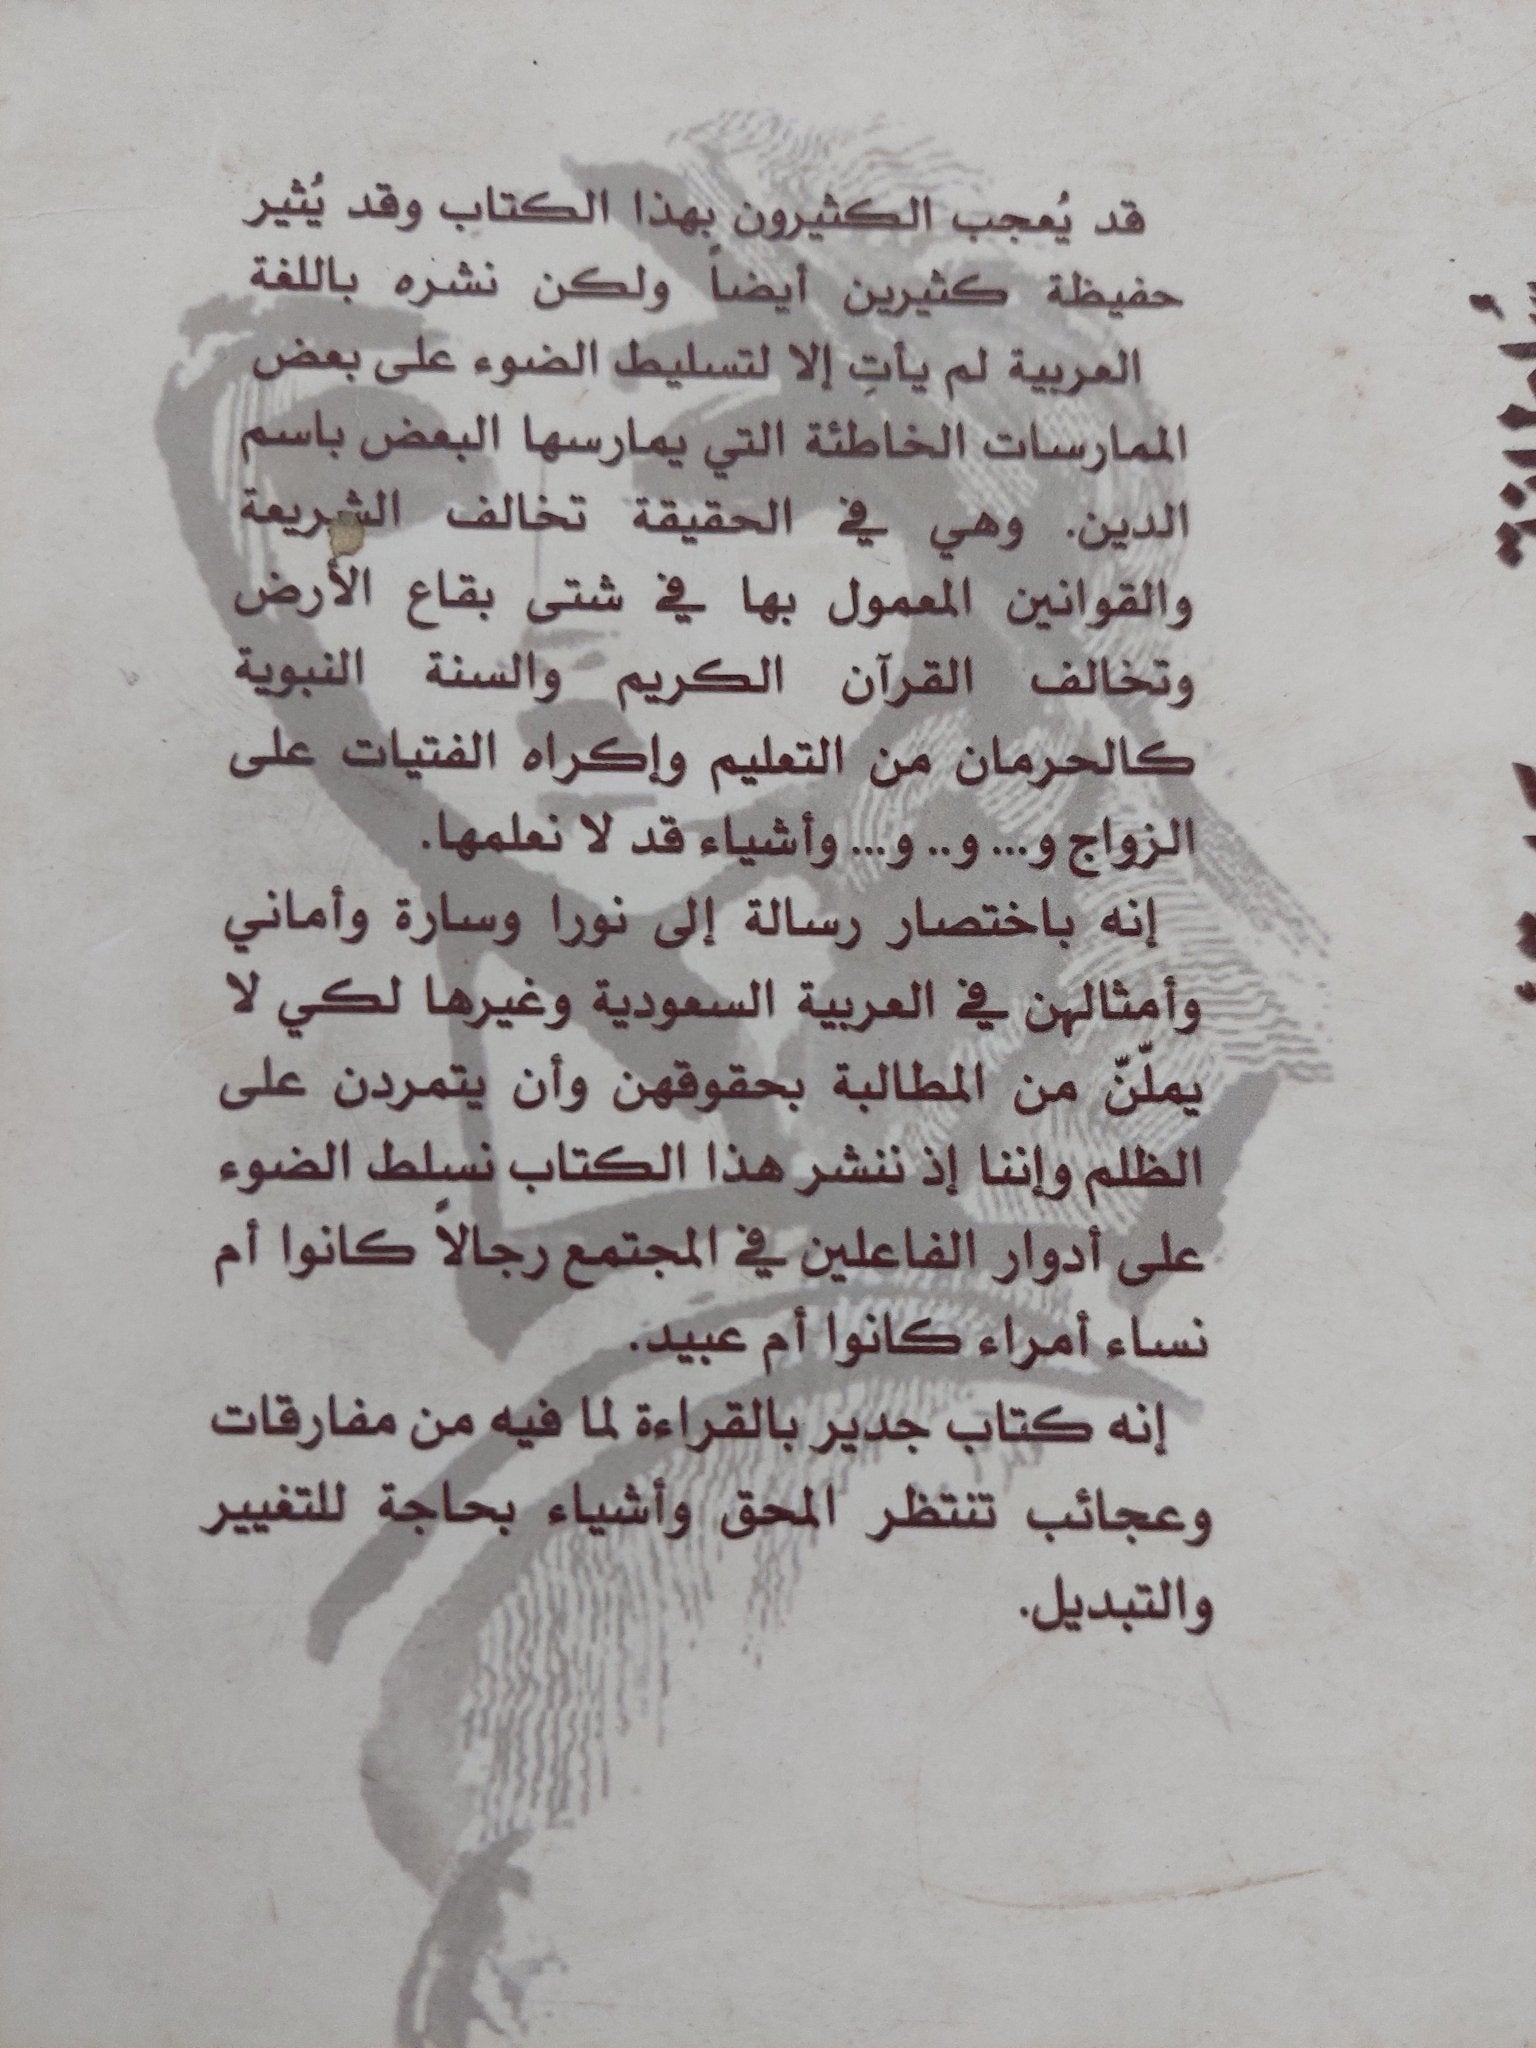 قد يُعجب الكثيرون بهذا الكتاب وقد يُثير
حفيظة كثيرين أيضاً ولكن نشره باللغة
العربية لم يأتِ إلا لتسليط الضوء على بعض
الممارسات الخاطئة التي يمارسها البعض باسم
الدين. وهي في الحقيقة تخالف الشريعة
والقوانين المعمول بها في شتى بقاع الأرض
وتخالف القرآن الكريم والسنة النبوية
كالحرمان من التعليم وإكراه الفتيات على
الزواج و... و.. و... وأشياء قد لا نعلمها.
إنه باختصار رسالة إلى نورا وسارة وأماني
وأمثالهن في العربية السعودية وغيرها لكي لا
يملّنّ من المطالبة بحقوقهن وأن يتمردن على
الظلم وإننا إذ ننشر هذا الكتاب نسلط الضوء
على أدوار الفاعلين في المجتمع رجالاً كانوا أم
نساء أمراء كانوا أم عبيد.
إنه كتاب جدير بالقراءة لما فيه من مفارقات
وعجائب تنتظر المحق وأشياء بحاجة للتغيير
والتبديل.